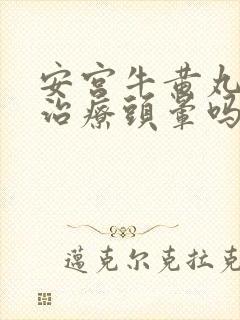 安宫牛黄丸
治療頭暈吗
邁克尔克拉克